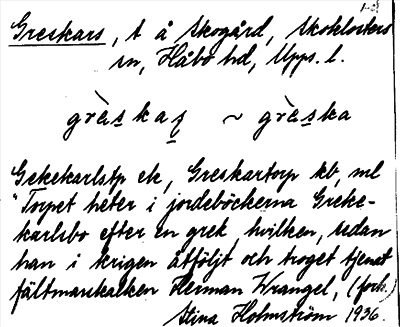 Greskars, t å Skogård, Skoklosters
sn, Håbo hd, Upps. l.
grèskas ~ grèska
Gekekarlstp ek, Greskartorp kb, ml
"Torpet heter i jordeböckerna Greke-
karlsbo efter en grek hvilken, sedan
han i krigen åtföljt och troget tjenat
fältmarskalken Herman Wrangel, (forts.)
Stina Holmström 1936.